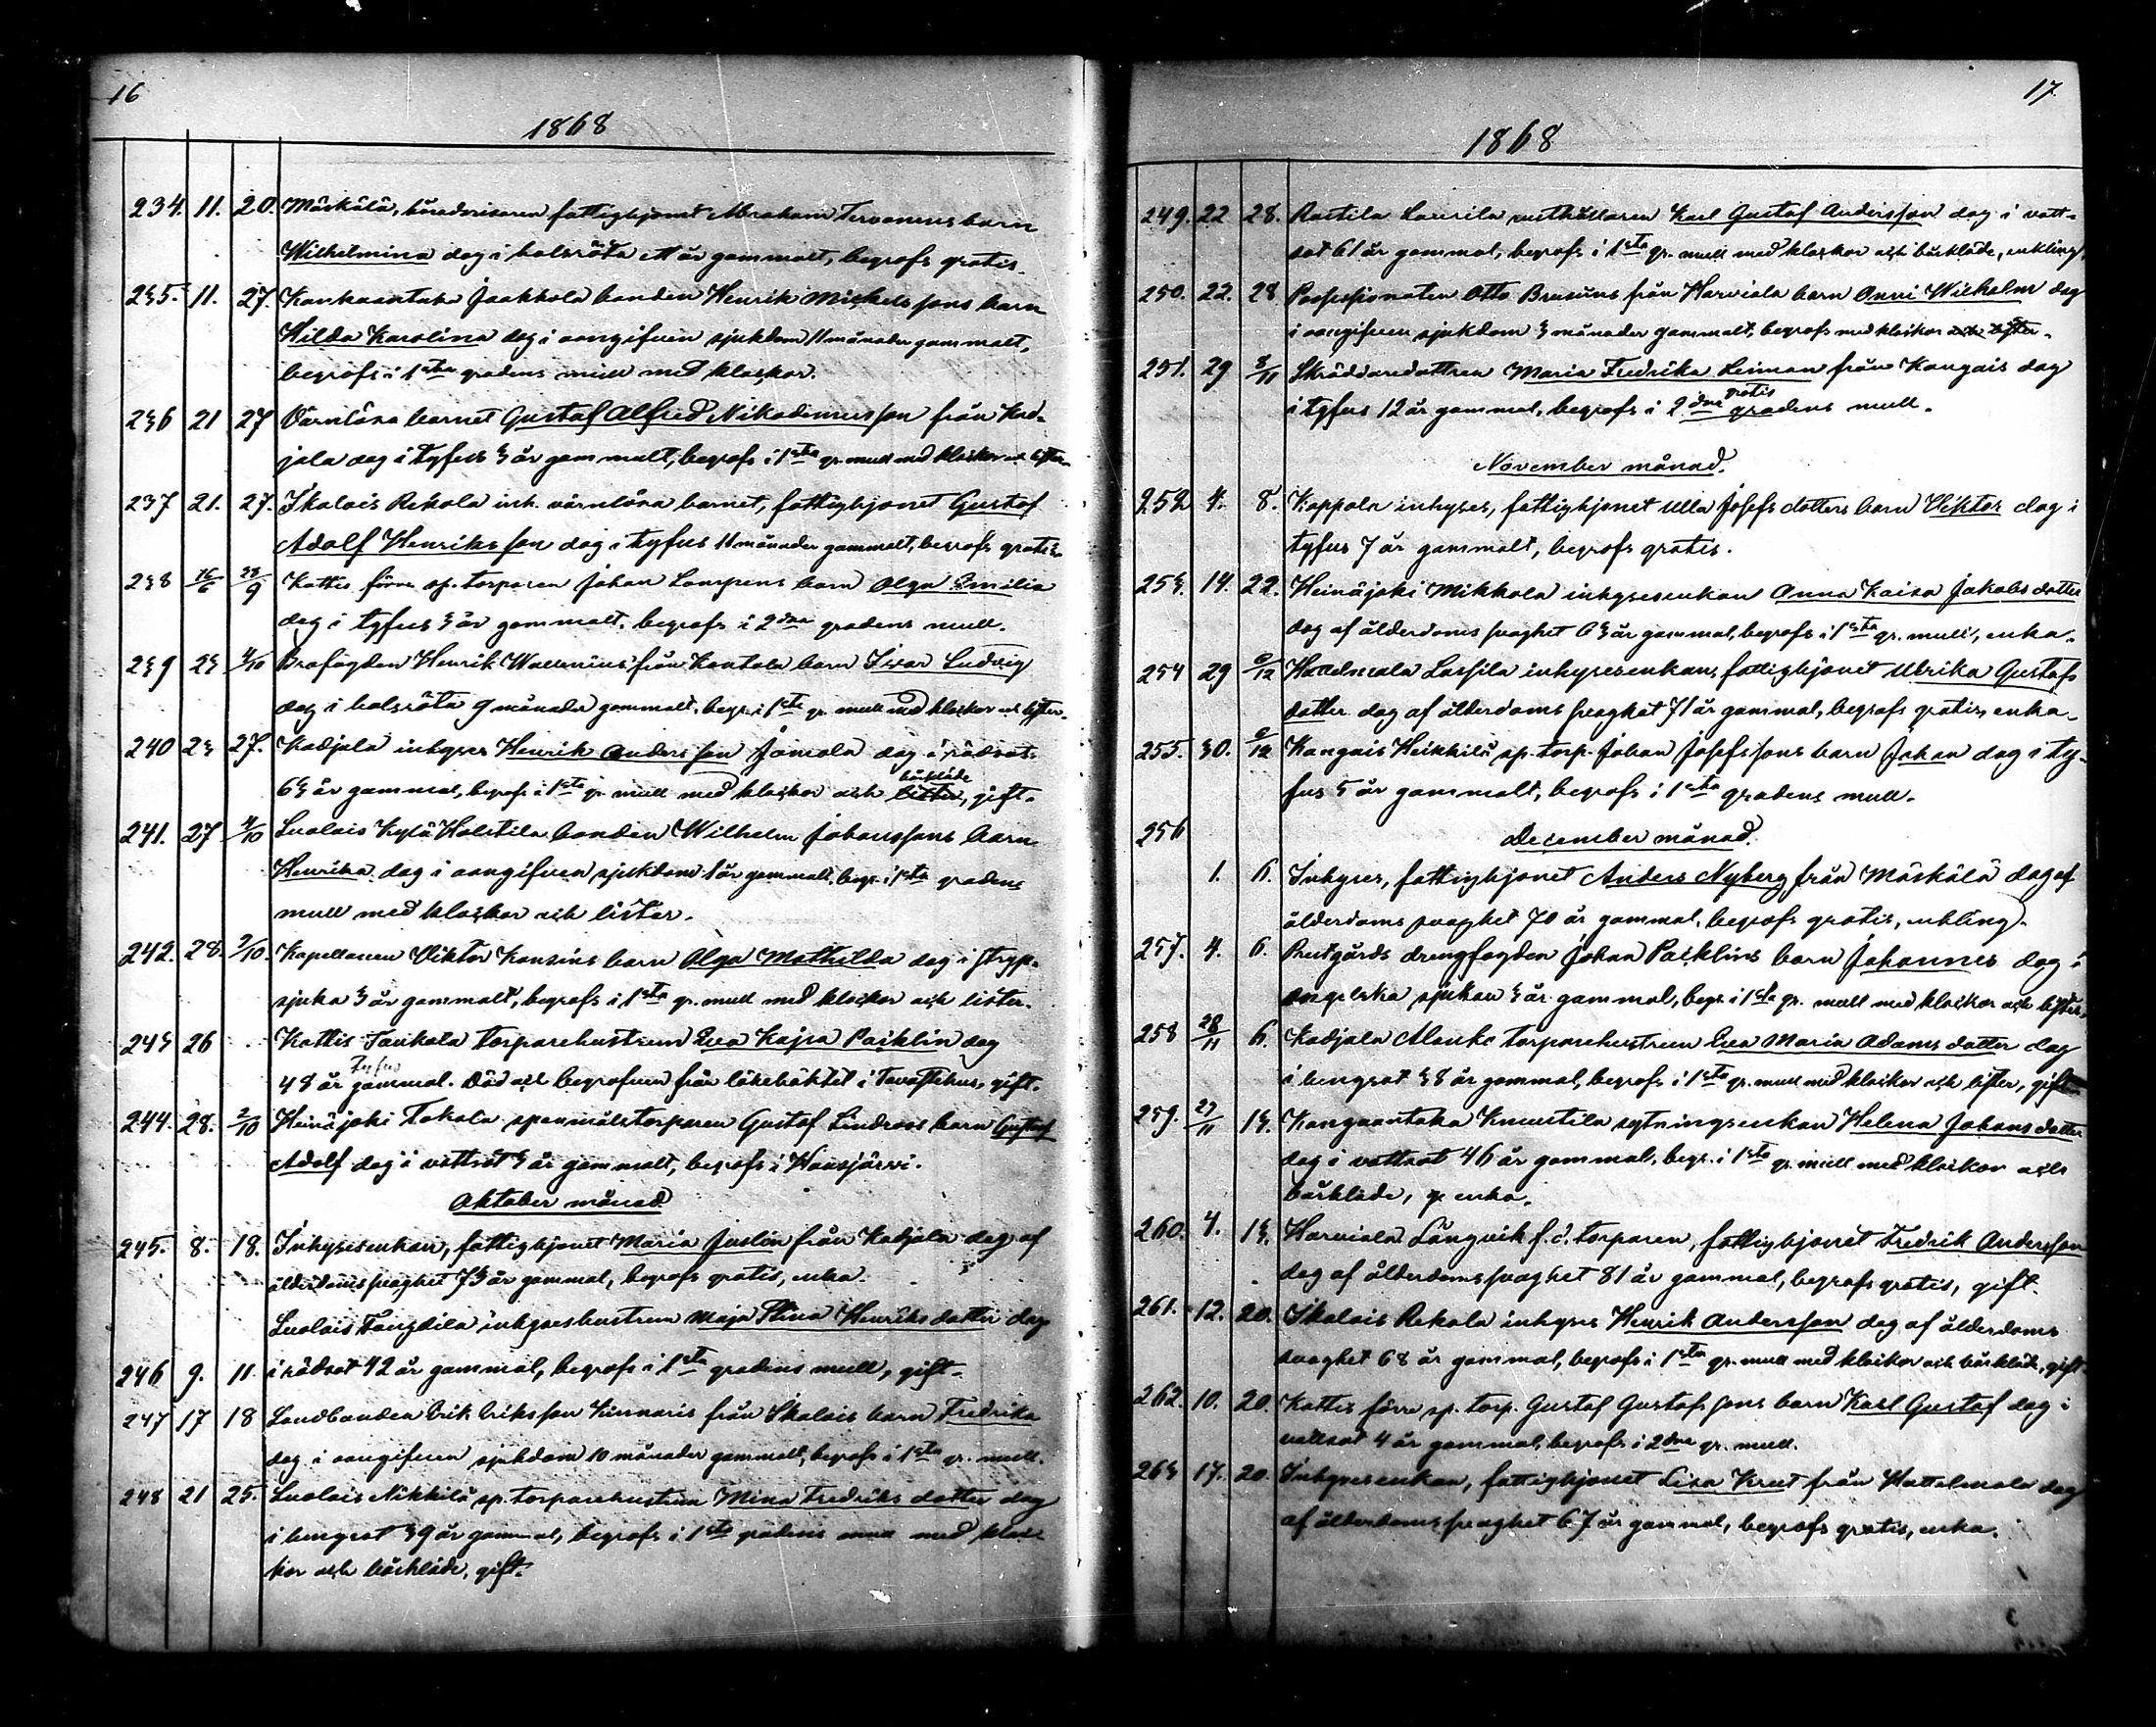 16
1868
234. 11. 20. Mäskälä, häradsvisaren fattighjonet Abraham Tervonens barn
Wilhelmina dog i halsröta ett år gammalt, begrofs gratis.
235. 11. 27. Kankaantaka Jaakkola bonden Henrik Michelssons barn
Hilda Karolina dog i oangifven sjukdom 11 månader gammalt,
begrofs i 1sta gradens mull med klockor.
236 21 27 Värnlösa barnet Gustaf Alfred Nikodemusson från Kad-
jala dog i tyfus 3 år gammalt, begrofs i 1sta gr. mull med klockor och lister.
237 21. 27. Ikalois Rekola inh. värnlösa barnet, fattighjonet Gustaf
Adolf Henriksson dog i tyfus 11 månader gammalt, begrofs gratis.
238 16/6 28/9 Kattis förre sp. torparen Johan Lampens barn Olga Emilia
dog i tyfus 3 år gammalt, begrofs i 2dra gradens mull.
239 23 4/10 Brofogden Henrik Wallenius från Kantola barn Ivar Ludvig
dog i halsröta 9 månader gammalt, begr. i 1sta gr. mull med klockor och lyster.
240 23 27. Kadjala inhyses Henrik Andersson Jamola dog i rödsot
63 år gammal, begrofs i 1sta gr. mull med klockor och lister, gift.
bårkläde
241. 27 4/10 Luolais Kylä Holstila bonden Wilhelm Johanssons barn
Henrika dog i oangifven sjukdom 1 år gammalt, begr. i 1sta gradens
mull med klockor och lister.
242. 28. 2/10. Kapellanen Viktor Konsins barn Olga Mathilda dog i stryp-
sjuka 3 år gammalt, begrofs i 1sta gr. mull med klockor och lister.
243 26 Kattis Taukola torparehustrun Eva Kajsa Päcklin dog
Tyfus
48 år gammal. Död och begrofven från länehäktet i Tavastehus, gift.
244. 28. 2/10 Heinäjoki Tokola spanmålstorparen Gustaf Lindroos barn Gustaf
Adolf dog i vattsot 3 år gammalt, begrofs i Hausjärvi.
Oktober månad
245. 8. 18. Inhysesenkan, fattighjonet Maria Juslin från Kadjala dog af
ålderdomssvaghet 73 år gammal, begrofs gratis, enka.
Luolais Tanzdila inhyseshustrun Maja Stina Henriksdotter dog
246 9. 11. i rödsot 42 år gammal, begrofs i 1sta gradens mull, gift.
247 17 18 Landbonden Erik Eriksson Kinnaris från Ikalois barn Fredrika
dog i oangifven sjukdom 10 månader gammalt, begrofs i 1sta gr. mull.
248 21 25. Luolais Nikkilä sp. torparehustrun Mina Fredriksdotter dog
i lungsot 39 år gammal, begrofs i 1sta gradens mull med kloc-
kor och bårkläde, gift.
17.
1868
249. 22 28. Rastila Laurila rusthållaren Karl Gustaf Andersson dog i vatt-
sot 61 år gammal, begrofs i 1sta gr. mull med klockor och bårkläde, enkling.
250. 22. 28 Possessionaten Otto Brusiins från Harviala barn Onni Wilhelm dog
i oangifven sjukdom 3 månader gammalt, begrofs med klockor och lyster.
251. 29 8/11 Skräddaredottren Maria Fredrika Leiman från Kangais dog
gratis
i tyfus 12 år gammal, begrofs i 2dra gradens mull.
November månad.
252 4. 8. Kappola inhyses, fattighjonet Ulla Josefsdotters barn Viktor dog i
tyfus 7 år gammalt, begrofs gratis.
253. 14. 22. Heinäjoki Mikkola inhysesenkan Anna Kaisa Jakobsdotter
dog af ålderdomssvaghet 63 år gammal, begrofs i 1sta gr. mull, enka.
254 29 6/12 Hattelmala Lassila inhysesenkan, fattighjonet Ulrika Gustafs
dotter dog af ålderdomssvaghet 71 år gammal, begrofs gratis, enka.
255. 30. 6/12 Kangais Heikkilä sp. torp. Johan Josefssons barn Johan dog i ty-
fus 5 år gammalt, begrofs i 1sta gradens mull.
256 December månad.
1. 6. Inhyses, fattighjonet Anders Nyberg från Mäskälä dog af
ålderdomssvaghet 70 år gammal, begrofs gratis, enkling.
257. 4. 6. Prestgårds drengfogden Johan Päcklins barn Johannes dog i
engelska sjukan 3 år gammal, begr. i 1sta gr. mull med klockor och lyster.
258 28/11 6. Kadjala Alanko torparehustrun Eva Maria Adamsdotter dog
i lungsot 38 år gammal, begrofs i 1sta gr. mull med klockor och lister, gift.
259. 27/11 13. Kangaantaka Knuutila sytningsenkan Helena Johansdotter
dog i vattsot 46 år gammal, begr. i 1sta gr. mull med klockor och
bårkläde, enka.
260. 4. 13. Harviala Långvik f. d. torparen, fattighjonet Fredrik Andersson
dog af ålderdomssvaghet 81 år gammal, begrofs gratis, gift.
261. 12. 20. Ikalois Rekola inhyses Henrik Andersson dog af ålderdoms
svaghet 68 år gammal, begrofs i 1sta gr. mull med klockor och bårkläde, gift.
262. 10. 20. Kattis förre sp. torp. Gustaf Gustafssons barn Karl Gustaf dog i
vattsot 4 år gammal, begrofs i 2dra gr. mull.
263 17. 20. Inhysesenkan, fattighjonet Lisa Krut från Hattelmala dog
af ålderdomssvaghet 67 år gammal, begrofs gratis, enka.